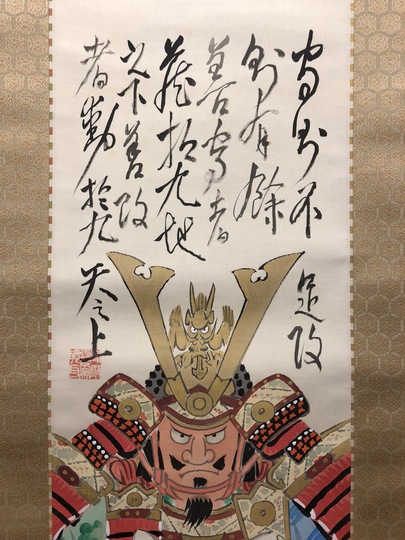 守則不足攻
則有餘
善守者
藏於九地
之下善攻
者動於九天之上